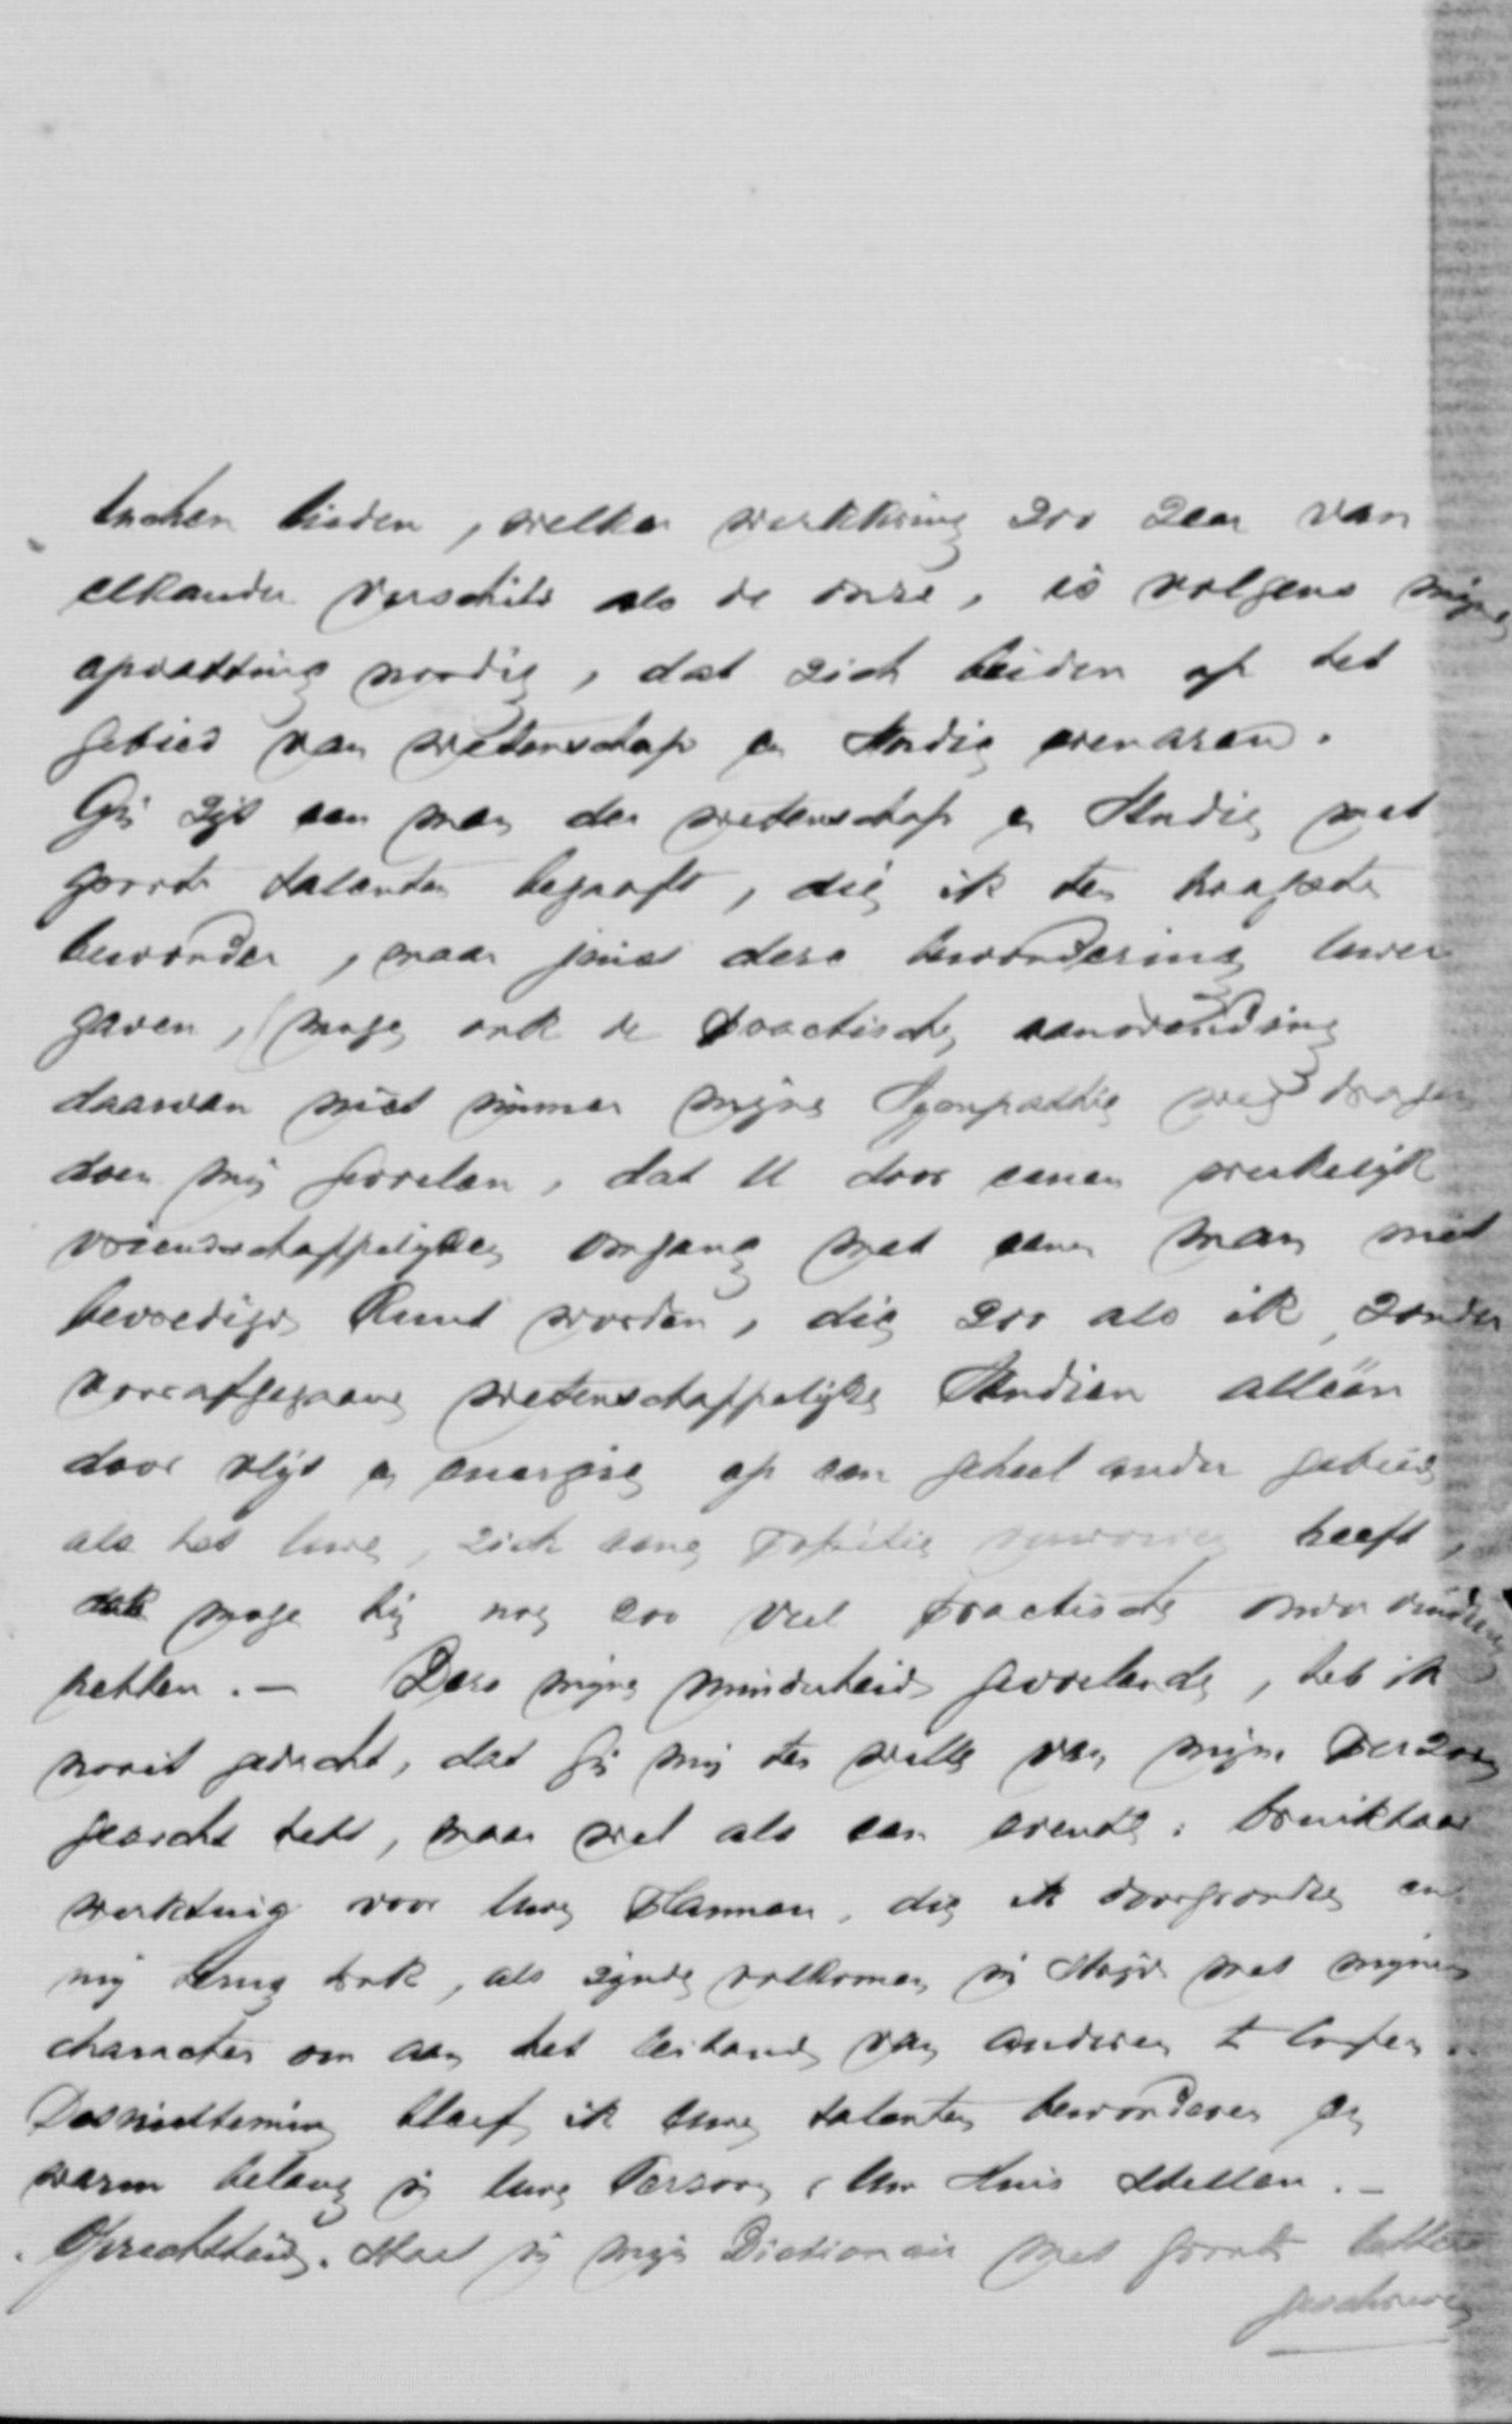 tuschen lieden, welker werkkring zoo zeer van
elkander verschild als de onze, is volgens mijne
opvatting noodig, dat zich beiden op het
gebied van wetenschap en Studie evenaren.
Gij zijt een man der wetenschap en Studie met
groote talenten begaaft, die ik ten hoogste
bewonder, maar juist deze bewondering Uwer
gaven, moge ook de practische aanwending
daarvan niet immer mijne Sympathie weg dragen
doen mij gevoelen, dat U door eenen werkelijk
vriendschappelijken omgang met eenen man niet
bevredigd kunt worden, die zoo als ik, zonder
voorafgegaane wetenschappelijke Studien alleën
door vlijt en energie op een geheel ander gebied
als het Uwe, zich eene positie verworven heeft,
moge hij nog zoo veel practische ondervinding
hebben. — Deze mijne minderheid gevoelende, heb ik
nooit gedacht, dat gij mij ter wille van mijne Persoon
gezocht hebt, maar wel als een eventl: bruikbaar
werktuig voor Uwe Plannen, die ik doorgrondde en
mij terug trok, als zijnde volkomen in strijd met mijnen
character om aan het leiband van anderen te loopen.
Desniettemin bleef ik Uwe talenten bewonderen en
warm belang in Uwe Persoon & Uw Huis stellen. —
Oprechtheid. staat in mijn Dictionair met groote letters
geschreven